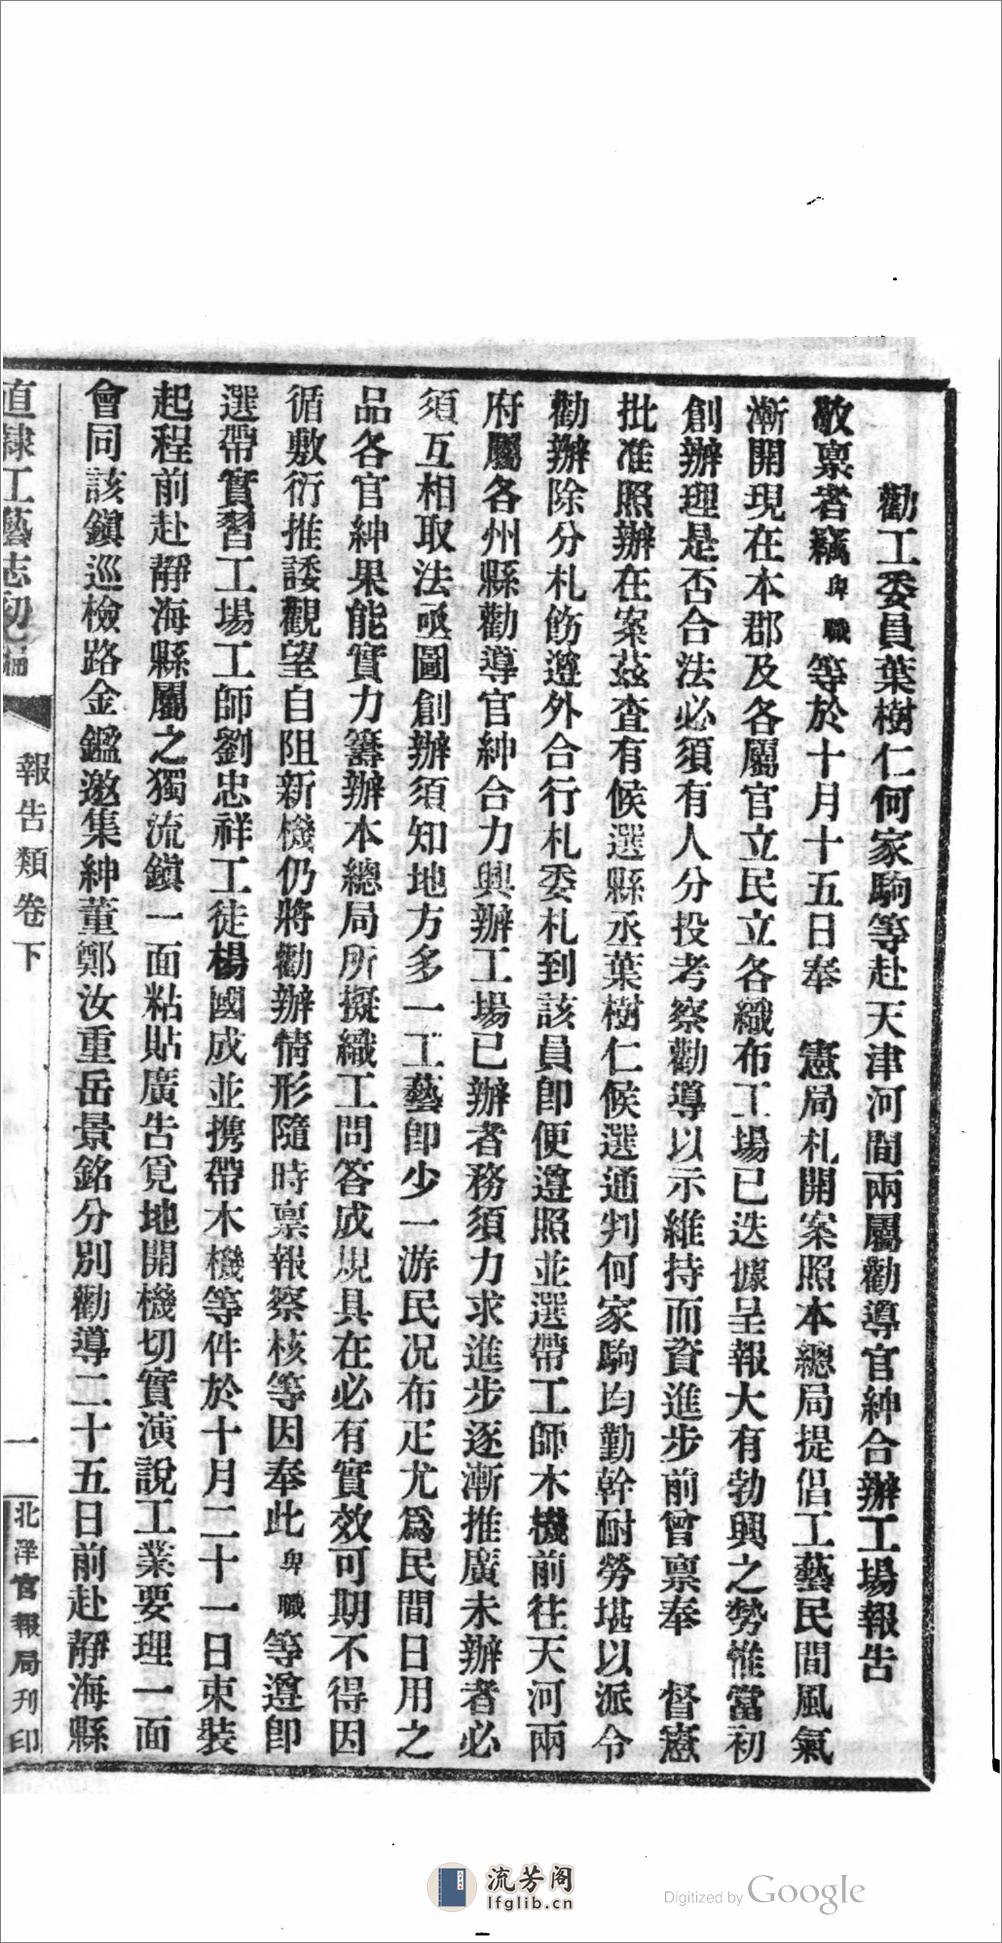 勸工委員葉樹仁何家駒等赴天津河間兩屬勸導官紳合辦工場報告
敬禀者竊卑職等於十月十五日奉　憲局札開案照本總局提倡工藝民間風氣
漸開現在本郡及各屬官立民立各織布工場已迭據呈報大有勃興之勢惟當初
創辦理是否合法必須有人分投考察勸導以示維持而資進步前曾禀奉　督憲
批准照辦在案茲查有候選縣丞葉樹仁候選通判何家駒均勤幹耐勞堪以派令
勸辦除分札飭遵外合行札委札到該員卽便遵照並選帶工師木機前往天河兩
府屬各州縣勸導官紳合力興辦工場已辦者務須力求進步逐漸推廣未辦者必
須互相取法亟圖創辦須知地方多一工藝卽少一游民况布疋尤爲民間日用之
品各官紳果能實力籌辦本總局所擬織工問答成規具在必有實效可期不得因
循敷衍推諉觀望自阻新機仍將勸辦情形隨時禀報察核等因奉此卑職等遵卽
選帶實習工場工師劉忠祥工徒楊國成並携帶木機等件於十月二十一日束裝
起程前赴靜海縣屬之獨流鎭一面粘貼廣告覓地開機切實演說工業要理一面
會同該鎭巡檢路金鑑邀集紳董鄭汝重岳景銘分別勸導二十五日前赴靜海縣
直隸工藝志初編
報告類卷下
一
北洋官報局刊印
流芳阁
lfglib.cn
Digitized by Google